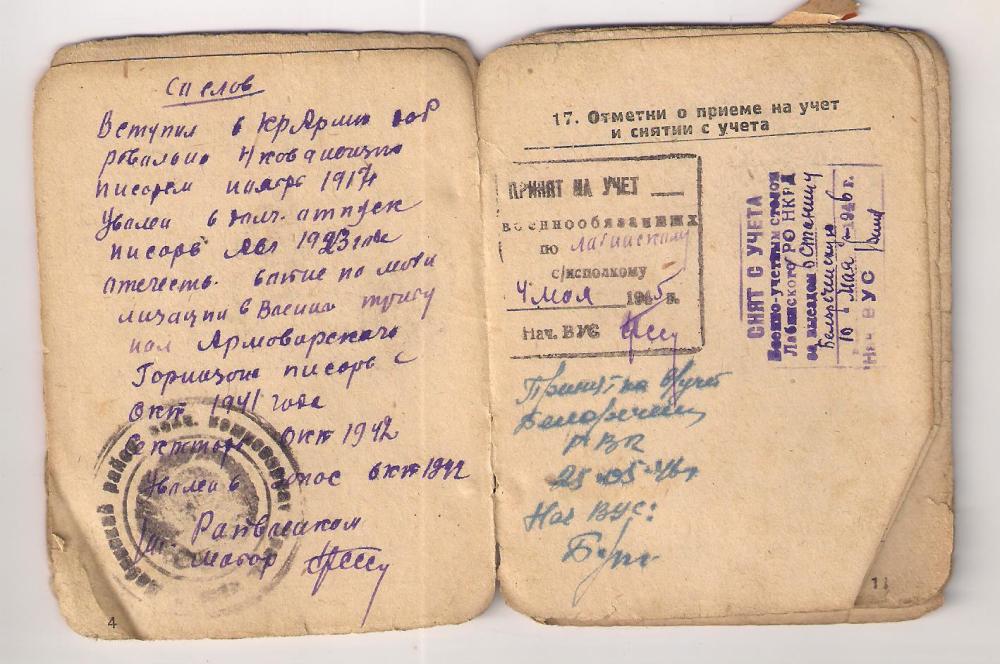 Со слов
Вступил в Кр Армию доб
ровольно
писарем ноябрь 1917г
Уволен в долг. отпуск
писарь Авг 1923 года
отечеств. взятие по моби
лизации в Военно
Армовирского
Горнизона писарь с
окт 1941 года
окт 1942
Уволен в окт 1942
Райвоенком
майор
4
17. Отметки о приеме на учет
и снятии с учета
ПРИНЯТ НА УЧЕТ
военнообязанных
по Лабинскому
с/исполкому
4 мая 1945 г.
Нач. ВУС
СНЯТ С УЧЕТА
Военно-учетным столом
Лабинского РО НКВД
за выездом в Станицу
Белореченскую
10 Мая 1946 г.
Нач ВУС
Принят на в/учет
Белореченск
РВК
25-05-46г
Нач ВУС:
11